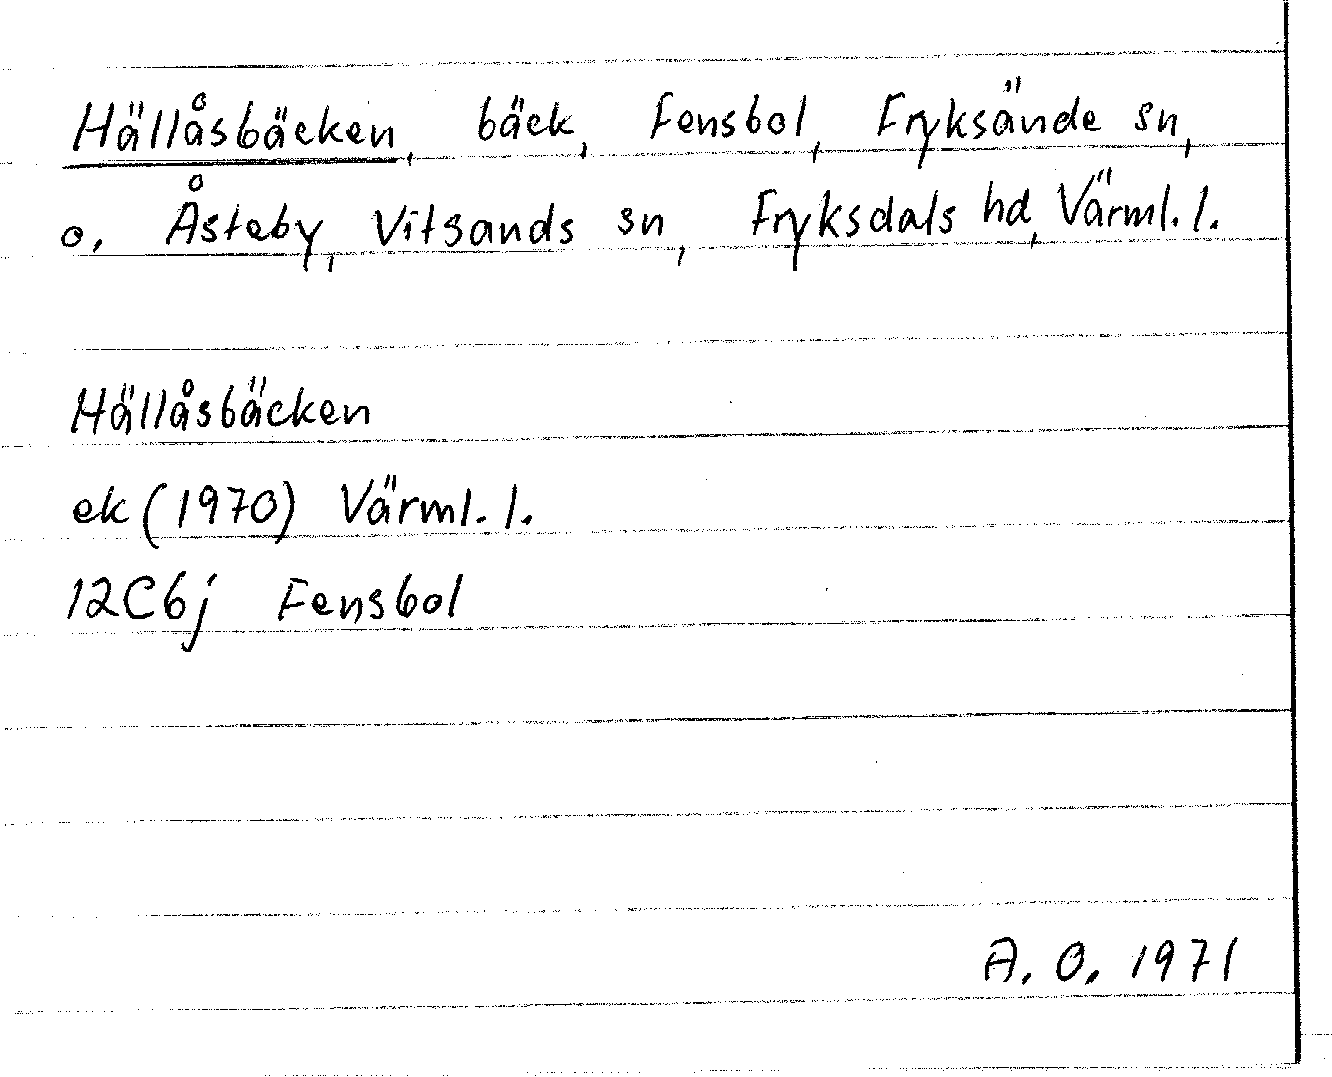 Hällåsbäcken, bäck, Fensbol, Fryksände sn,
o. Åsteby, Vitsands sn, Fryksdals hd, Värml. l.
Hällåsbäcken
ek (1970) Värml. l.
12C6j Fensbol
A. O. 1971